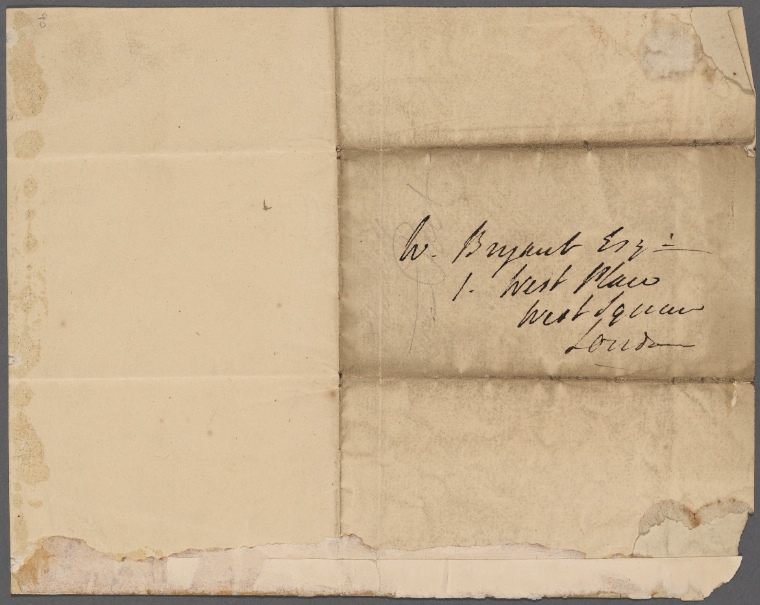 W. Bryant Esq=
1. West Place
West Square
London